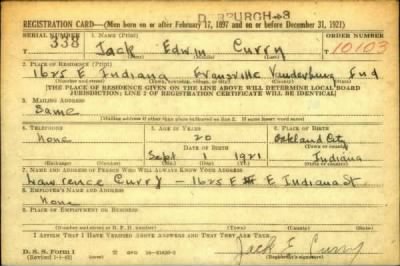 REGISTRATION CARD—(Men born on or after February 17, 1897 and on or before December 31, 1921)
SERIAL NUMBER 1. NAME (Print) ORDER NUMBER
338 Jack Edwin Curry 10103
2. PLACE OF RESIDENCE (Print)
1625 E Indiana Evansville Vanderburg Ind
[THE PLACE OF RESIDENCE GIVEN ON THE LINE ABOVE WILL DETERMINE LOCAL BOARD
JURISDICTION; LINE 2 OF REGISTRATION CERTIFICATE WILL BE IDENTICAL]
3. MAILING ADDRESS
Same
4. TELEPHONE 5. AGE IN YEARS 6. PLACE OF BIRTH
None 20 Oakland City
DATE OF BIRTH (Town or county)
Sept 1 1921 Indiana
(Exchange) (Number) (Mo.) (Day) (Yr.) (State or country)
7. NAME AND ADDRESS OF PERSON WHO WILL ALWAYS KNOW YOUR ADDRESS
Lawrence Curry — 1625 E Indiana St
8. EMPLOYER'S NAME AND ADDRESS
None
9. PLACE OF EMPLOYMENT OR BUSINESS
(Number and street or R. F. D. number) (Town) (County) (State)
I AFFIRM THAT I HAVE VERIFIED ABOVE ANSWERS AND THAT THEY ARE TRUE.
D. S. S. Form 1 Jack E Curry
(Revised 1-1-42) GPO